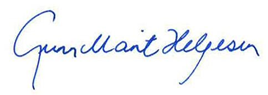 Gunn Marit Helgesen